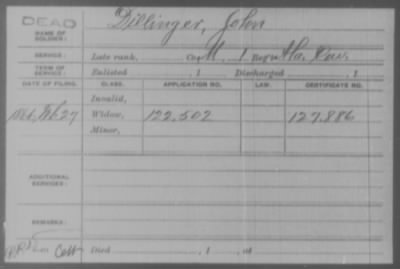 DEAD
NAME OF SOLDIER: Dillinger, John
SERVICE: Late rank, Co. M, 1 Reg't Ala.
TERM OF SERVICE: Enlisted , 1 Discharged , 1
DATE OF FILING. CLASS. APPLICATION NO. LAW. CERTIFICATE NO.
Invalid,
1866, Feb 27 Widow, 122.502 127.886
Minor,
ADDITIONAL SERVICES:
REMARKS:
Died , 1 , at